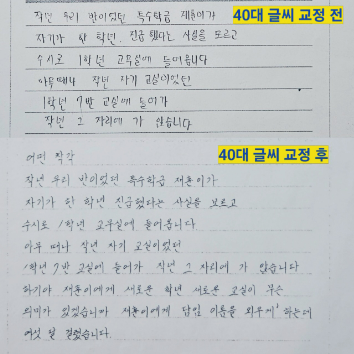 40대 글씨 교정 전
작년 우리 반이었던 특수학급 재훈이가
자기가 한 학년 진급했다는 사실을 모르고
수시로 1학년 교무실에 들어옵니다
아무때나 작년 자기 교실이었던
1학년 7반 교실에 들어가
작년 그 자리에 가 앉습니다
40대 글씨 교정 후
어떤 착각
작년 우리 반이었던 특수학급 재훈이가
자기가 한 학년 진급했다는 사실을 모르고
수시로 1학년 교무실에 들어옵니다
아무 때나 작년 자기 교실이었던
1학년 7반 교실에 들어가 작년 그 자리에 가 앉습니다
하기야 재훈이에게 새로운 학년 새로운 교실이 무슨
의미가 있겠습니까 재훈이에게 담임 이름을 외우게 하는데
여섯 달 걸렸습니다.